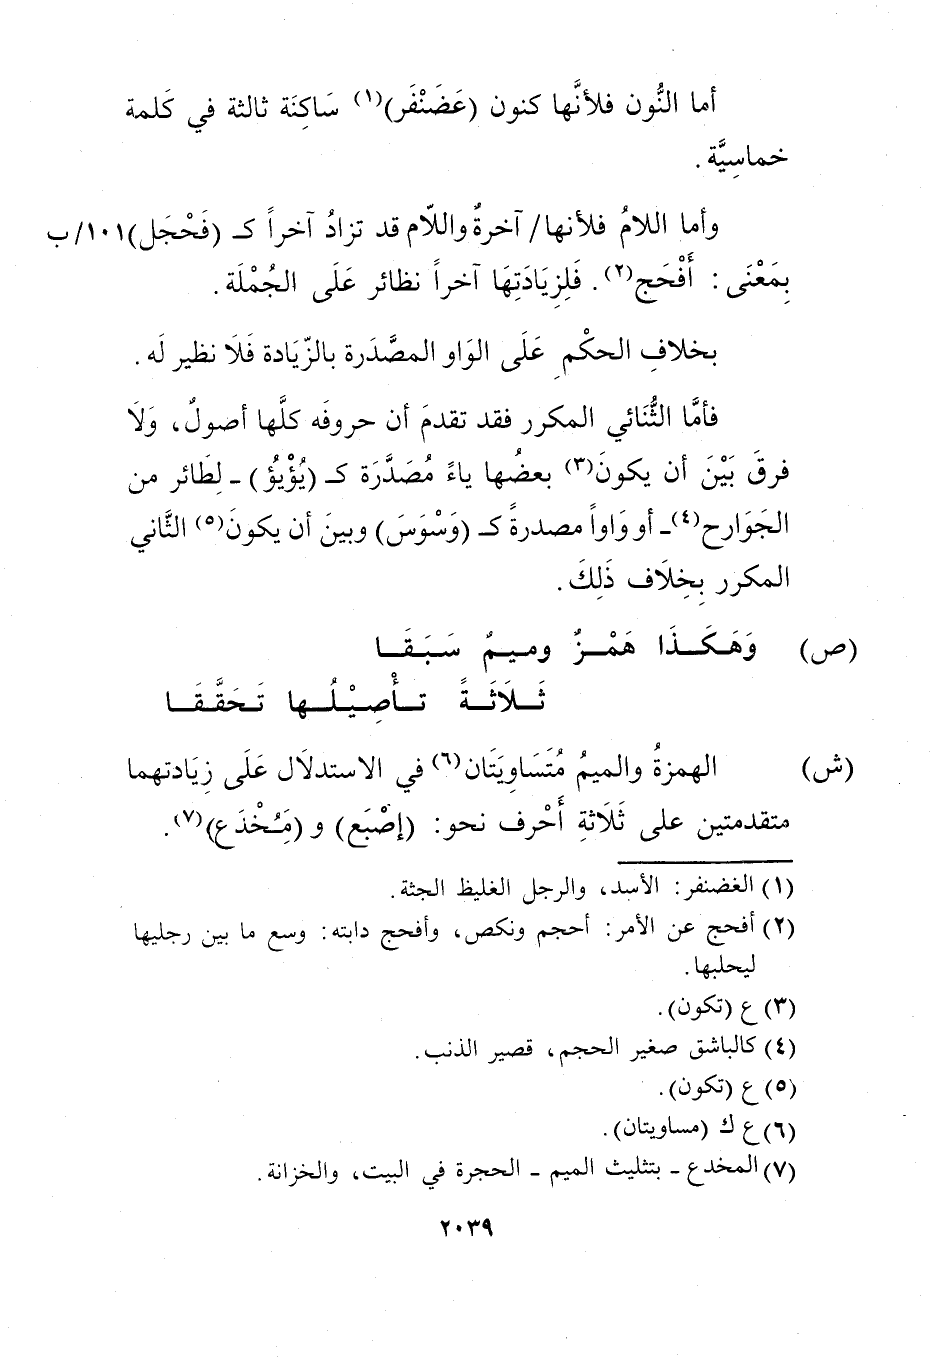 أما النُّون فلأنَّها كنون (عَضَنْفَر)(١) سَاكِنَة ثالثة في كَلمة
خماسِيَّة .
وأما اللامُ فلأنها/ آخرةٌ واللّام قد تزادُ آخراً كـ (فَحْجَل) ١٠١/ب
بِمَعْنَى : أَفْحَج(٢). فَلِزِيَادَتِهَا آخراً نظائر عَلَى الجُمْلَة .
بخلافِ الحكْمِ عَلَى الوَاو المصَّدَرة بالزّيَادة فَلَا نظير لَه .
فأمَّا الثُّنَائي المكرر فقد تقدمَ أن حروفَه كلَّها أصولٌ، وَلَا
فرقَ بَيْنَ أن يكونَ(٣) بعضُها ياءً مُصَدَّرَة كـ (يُؤْيُؤ) ـ لِطَائر من
الجَوَارح(٤) ـ أو وَاواً مصدرةً كـ (وَسْوَسَ) وبينَ أن يكونَ(٥) الثَّاني
المكرر بِخِلَاف ذَلِكَ .
(ص) وَهَكَـذَا هَمْـزٌ وميـمٌ سَبَقَـا
ثَـلَاثَـةً تـأْصِيْلُـهـا تَـحَقَّـقَـا
(ش) الهمزةُ والميمُ مُتَسَاوِيَتَان(٦) في الاستدلَال عَلَى زِيَادتهما
متقدمتين على ثَلَاثةِ أَحْرف نحو: (إصْبَع) و (مَُِخْدَع)(٧).
(١) الغضنفر: الأسد، والرجل الغليظ الجثة.
(٢) أفحج عن الأمر: أحجم ونكص، وأفحج دابته: وسع ما بين رجليها
ليحلبها.
(٣) ع (تكون).
(٤) كالباشق صغير الحجم، قصير الذنب.
(٥) ع (تكون).
(٦) ع ك (مساويتان).
(٧) المخدع ـ بتثليث الميم ـ الحجرة في البيت، والخزانة.
٢٠٣٩